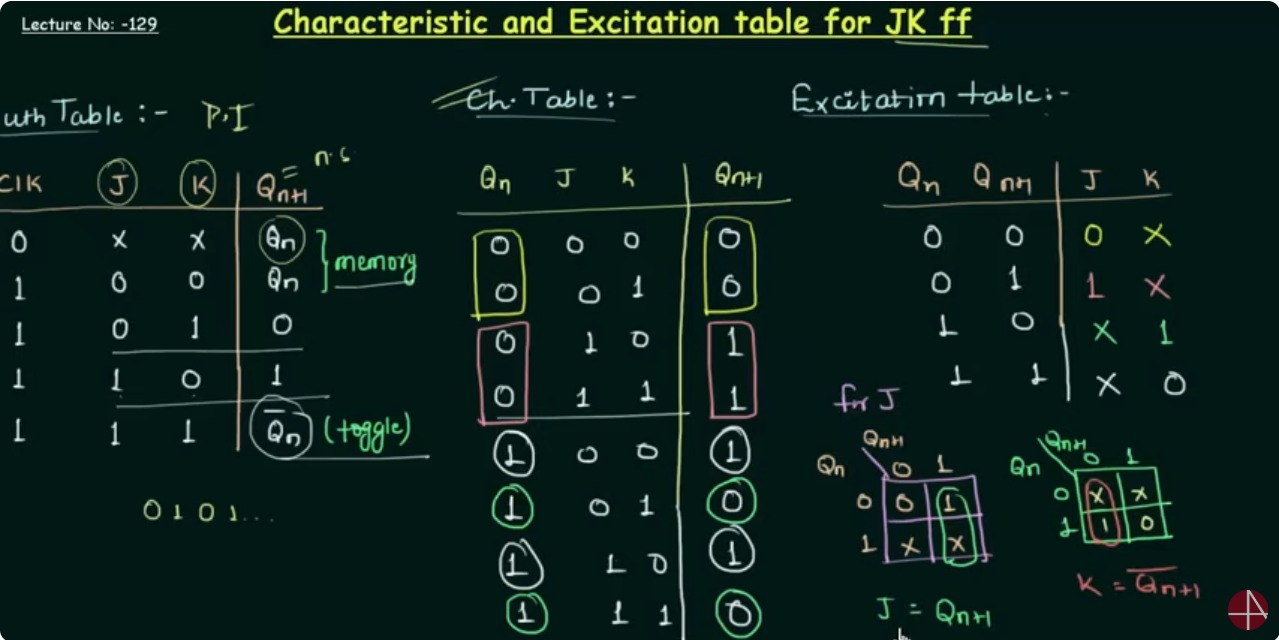 Lecture No: -129
Characteristic and Excitation table for JK ff
uth Table :- P.I
Clk J K Qn+1 = n.s
0 x x Qn
1 0 0 Qn
memory
1 0 1 0
1 1 0 1
1 1 1 Q̅n (toggle)
0 1 0 1...
Ch. Table :-
Qn J K Qn+1
0 0 0 0
0 0 1 0
0 1 0 1
0 1 1 1
1 0 0 1
1 0 1 0
1 1 0 1
1 1 1 0
Excitation table :-
Qn Qn+1 J K
0 0 0 x
0 1 1 x
1 0 x 1
1 1 x 0
for J
Qn+1
Qn 0 1
0 0 1
1 x x
J = Qn+1
Qn+1
Qn 0 1
0 x x
1 1 0
K = Q̅n+1